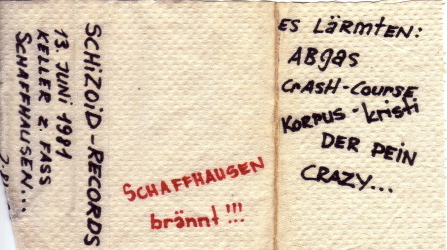 SCHiZOiD-RECORDS
13. JUNi 1981
KELLER Z. FASS
SCHAFFHAUSEN...
SCHAFFHAUSEN
brännt!!!
ES LÄRMTEN:
ABgas
CrASH-COURSE
KORPUS-kristi
DER PEiN
CRAZY...